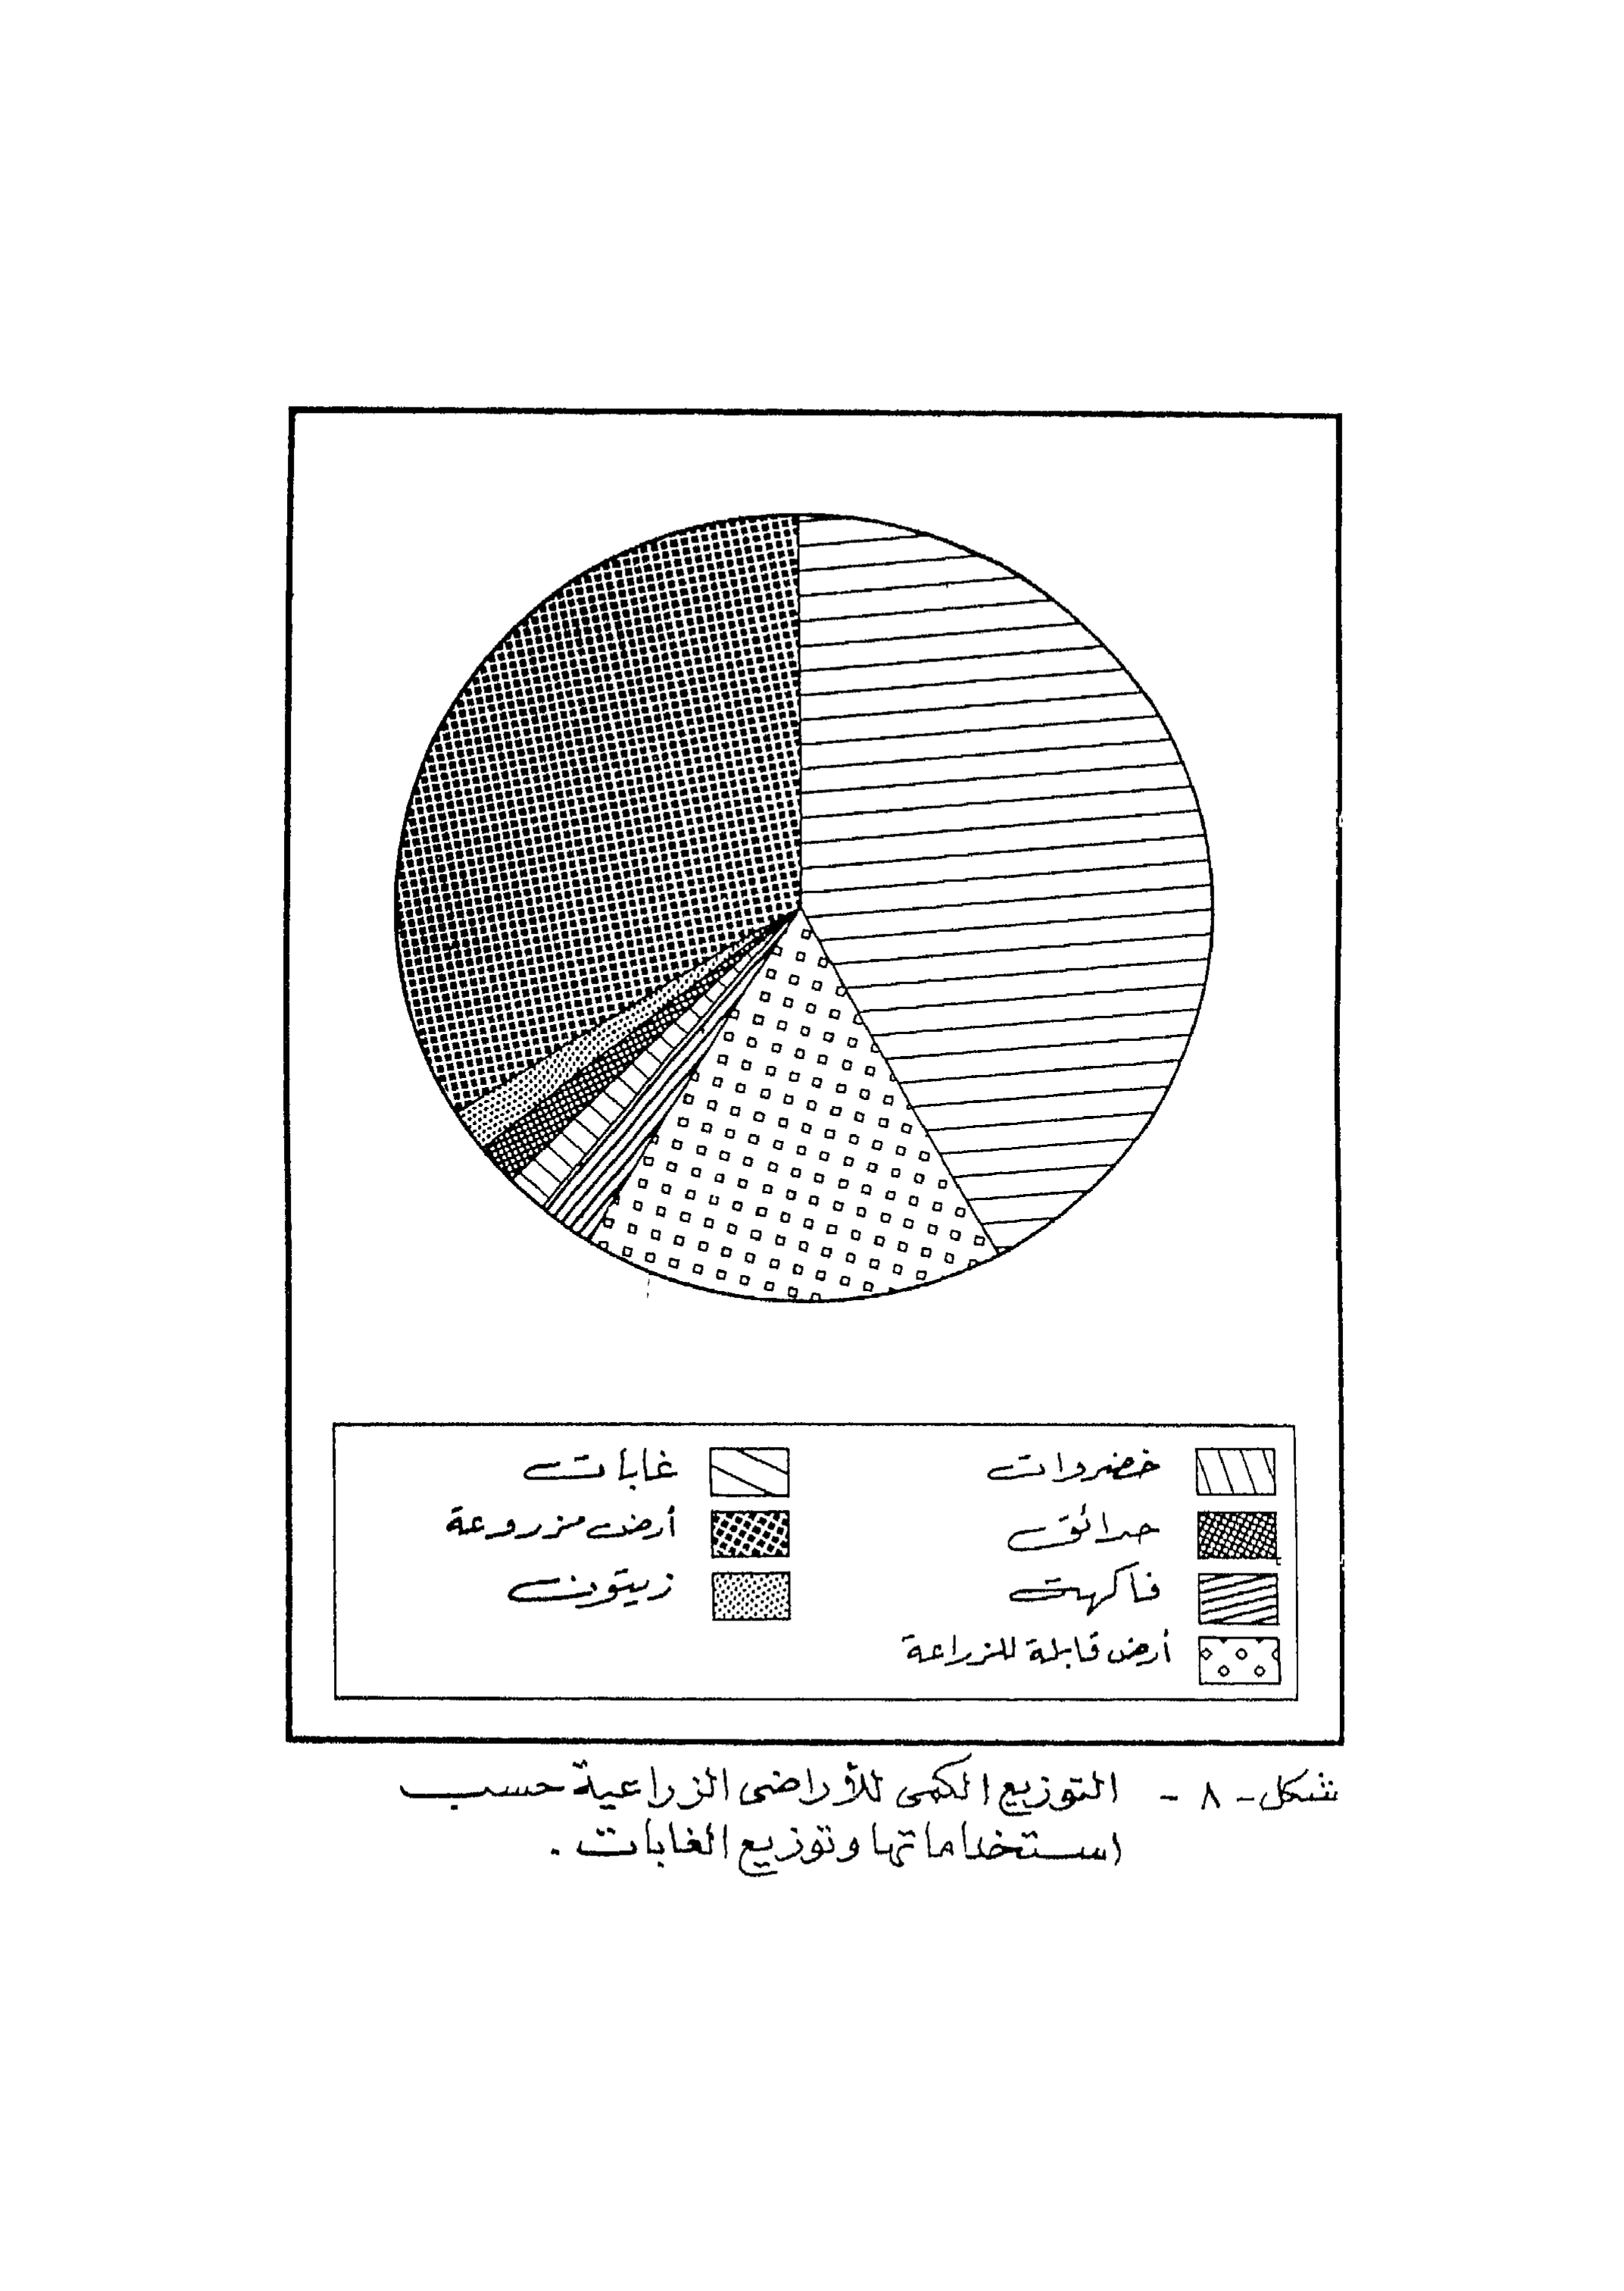 خضروات غابات
حدائق أرض مزروعة
فاكهة زيتون
أرض قابلة للزراعة
شكل - ٨ - التوزيع الكمى للأراضى الزراعية حسب
استخداماتها وتوزيع الغابات .